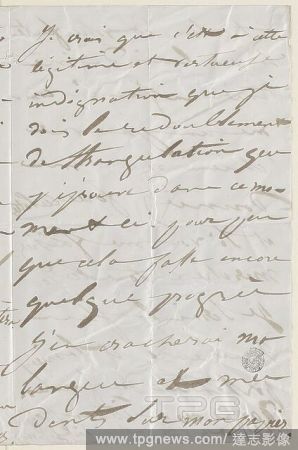 Je crois que c'est à cette
légitime et vertueuse
indignation que je
dois le redoublement
de strangulation que
j'éprouve dans ce mo-
ment ci. pour peu
que cela fasse encore
quelque progrès
j'en cracherai ma
langue et mes
dents sur mon papier
TPG
www.tpgnews.com/達志影像